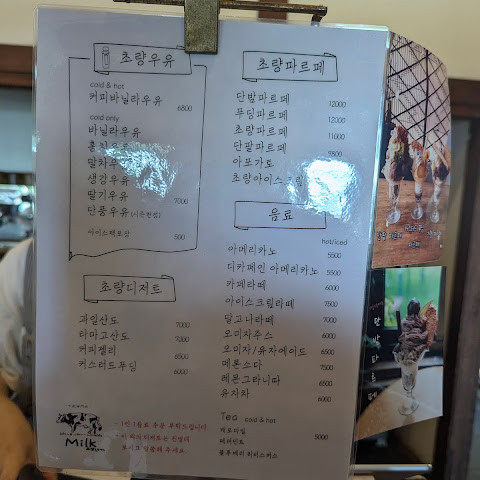 초량우유
cold & hot
커피바닐라우유 6800
cold only
바닐라우유
홍차우유
말차우유
생강우유
딸기우유 7000
단풍우유(시즌한정)
아이스팩포장 500
초량디저트
과일산도 7000
타마고산도 7000
커피젤리 6500
커스터드푸딩 6500
Milk
- 1인 1음료 주문 부탁드립니다
초량파르페
단밤파르페 12000
푸딩파르페 12000
초량파르페 11000
단팥파르페 9800
아포가토
초량아이스크림
음료
hot/iced
아메리카노 5500
디카페인 아메리카노 5500
카페라떼 6000
아이스크림라떼 7500
달고나라떼 7000
오미자주스 6000
오미자/유자에이드 6500
메론소다 7500
레몬그라니따 6500
유자차 6000
Tea cold & hot
캐모마일
페퍼민트 5000